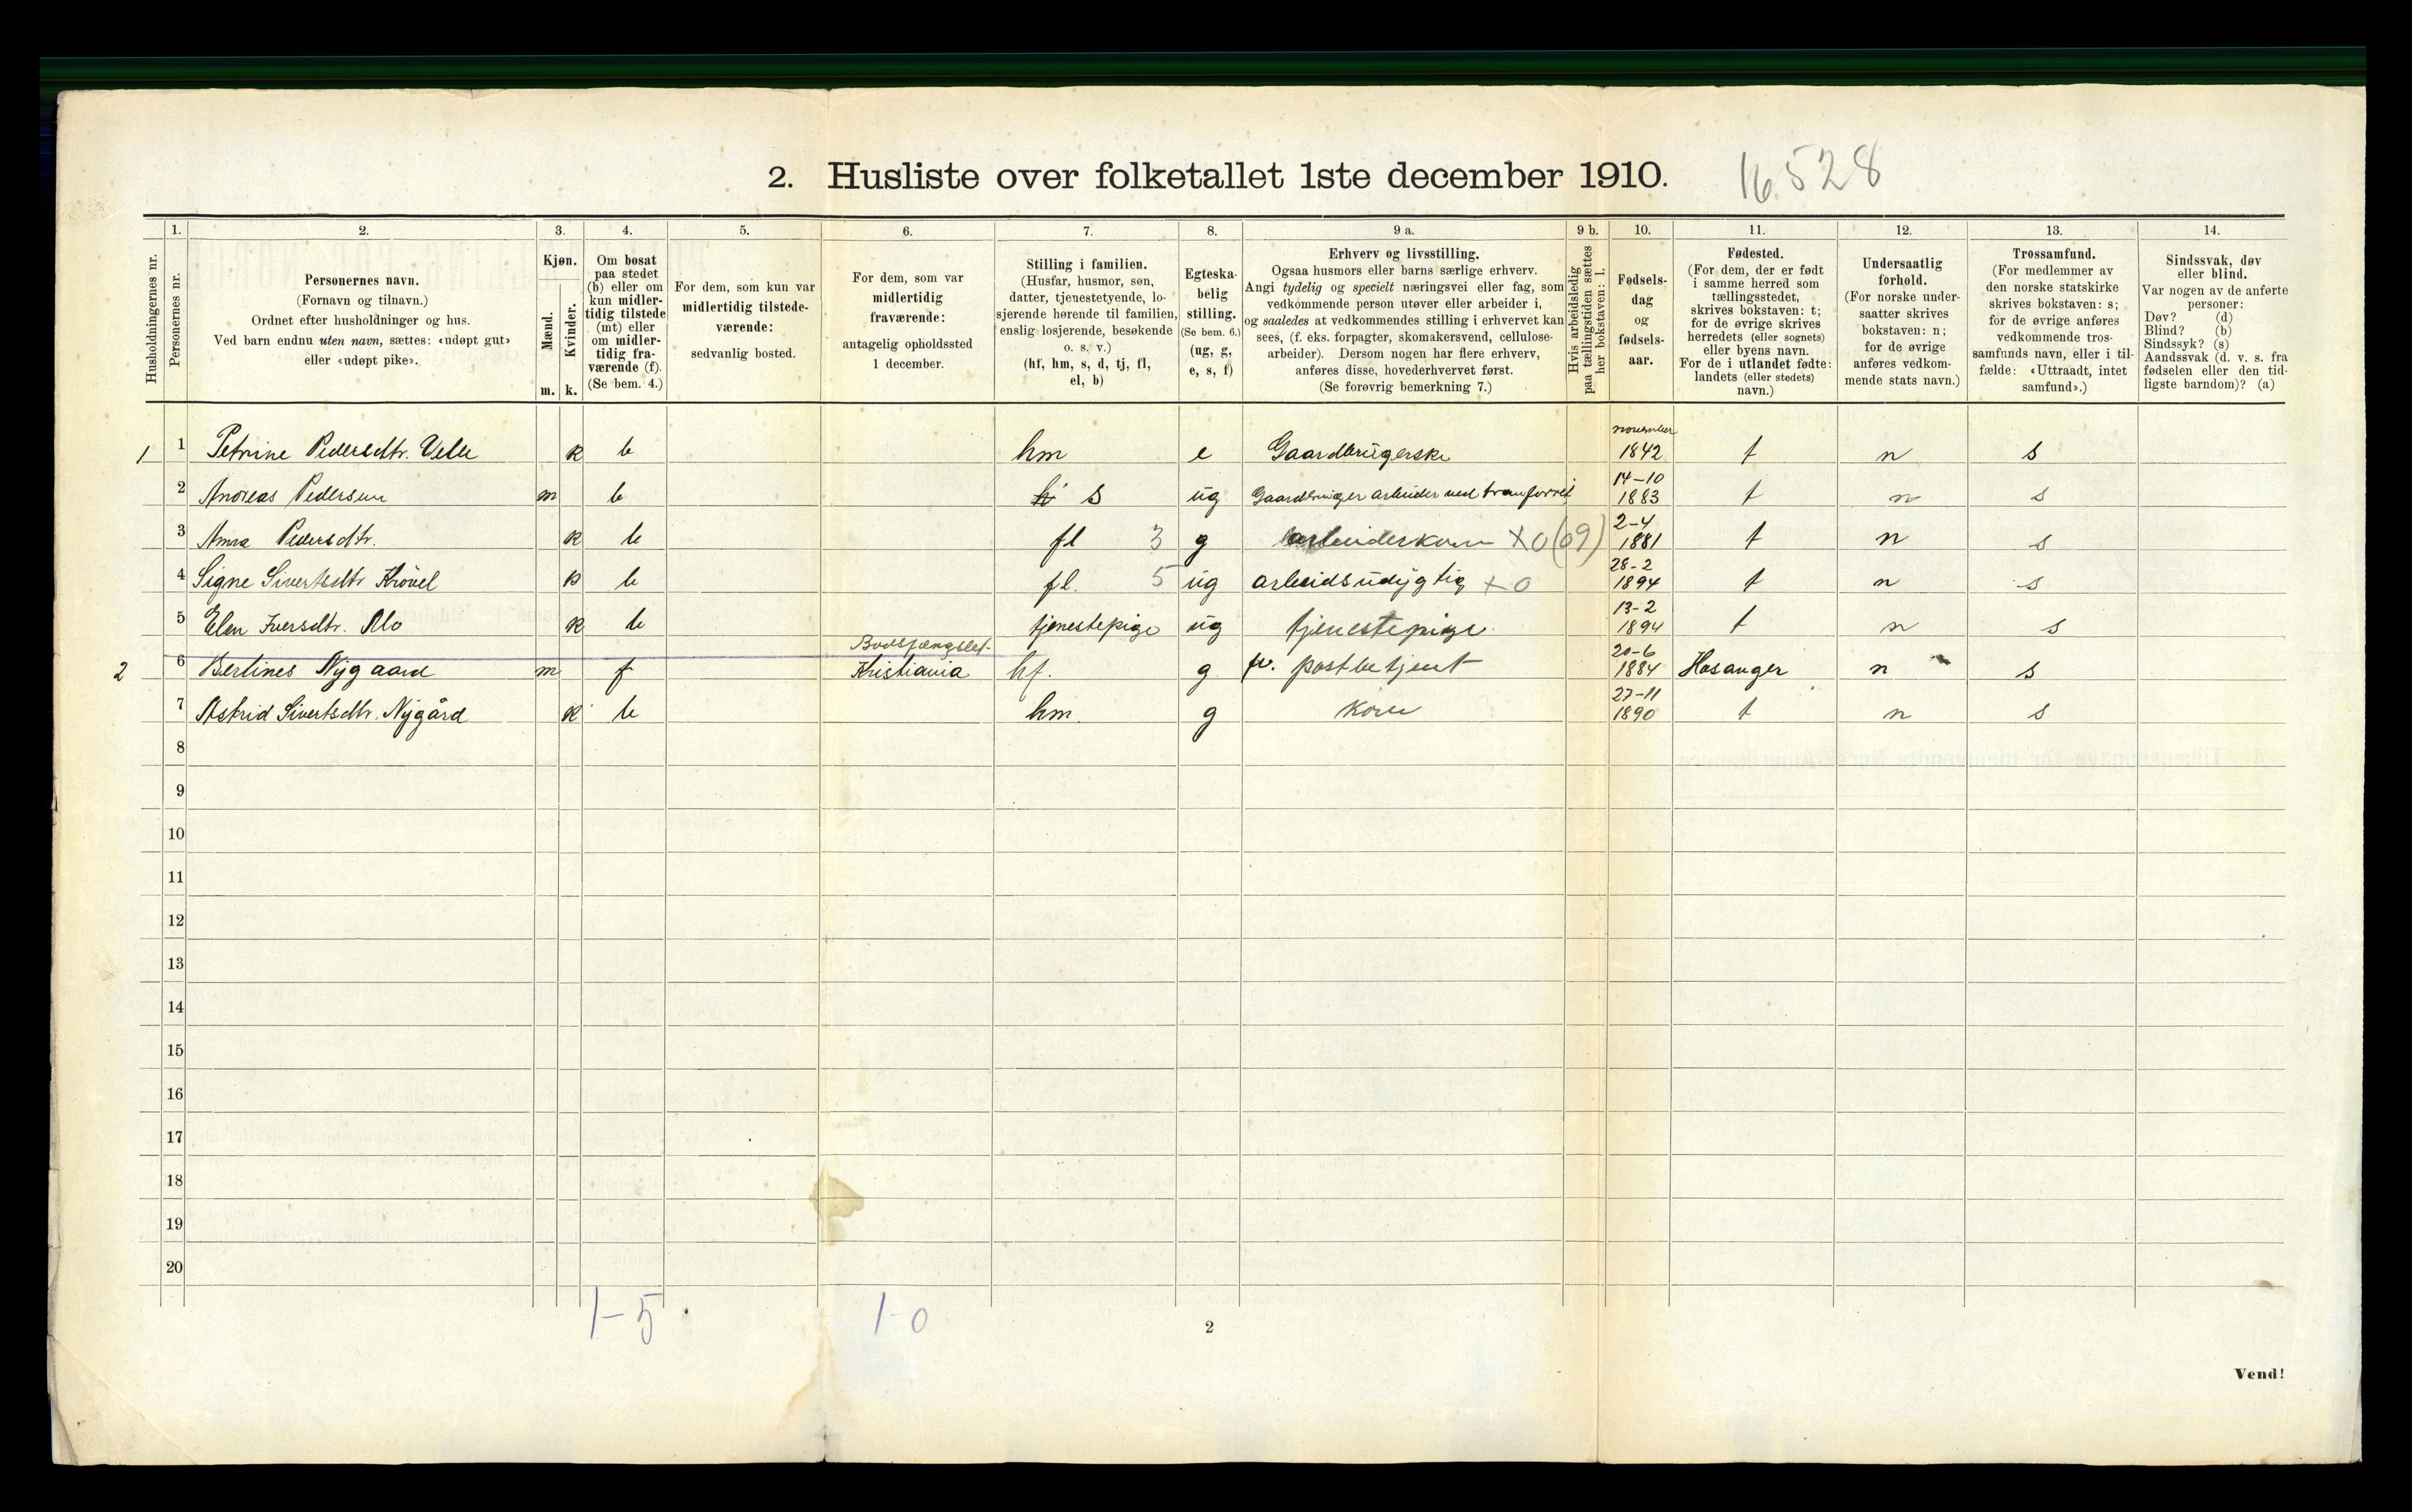 2. Husliste over folketallet 1ste december 1910. 16528
Husholdningernes nr.
1.
Personernes nr.
2.
Personernes navn.
(Fornavn og tilnavn.)
Ordnet efter husholdninger og hus.
Ved barn endnu uten navn, sættes: «udøpt gut»
eller «udøpt pike».
3.
Kjøn.
Mænd.
Kvinder.
m. k.
4.
Om bosat
paa stedet
(b) eller om
kun midler-
tidig tilstede
(mt) eller
om midler-
tidig fra-
værende (f).
(Se bem. 4.)
5.
For dem, som kun var
midlertidig tilstede-
værende:
sedvanlig bosted.
6.
For dem, som var
midlertidig
fraværende:
antagelig opholdssted
1 december.
7.
Stilling i familien.
(Husfar, husmor, søn,
datter, tjenestetyende, lo-
sjerende hørende til familien,
enslig losjerende, besøkende
o. s. v.)
(hf, hm, s, d, tj, fl,
el, b)
8.
Egteska-
belig
stilling.
(Se bem. 6.)
(ug, g,
e, s, f)
9 a.
Erhverv og livsstilling.
Ogsaa husmors eller barns særlige erhverv.
Angi tydelig og specielt næringsvei eller fag, som
vedkommende person utøver eller arbeider i,
og saaledes at vedkommendes stilling i erhvervet kan
sees, (f. eks. forpagter, skomakersvend, cellulose-
arbeider). Dersom nogen har flere erhverv,
anføres disse, hovederhvervet først.
(Se forøvrig bemerkning 7.)
9 b.
Hvis arbeidsledig
paa tællingstiden sættes
her bokstaven: l.
10.
Fødsels-
dag
og
fødsels-
aar.
11.
Fødested.
(For dem, der er født
i samme herred som
tællingsstedet,
skrives bokstaven: t;
for de øvrige skrives
herredets (eller sognets)
eller byens navn.
For de i utlandet fødte:
landets (eller stedets)
navn.)
12.
Undersaatlig
forhold.
(For norske under-
saatter skrives
bokstaven: n;
for de øvrige
anføres vedkom-
mende stats navn.)
13.
Trossamfund.
(For medlemmer av
den norske statskirke
skrives bokstaven: s;
for de øvrige anføres
vedkommende tros-
samfunds navn, eller i til-
fælde: «Uttraadt, intet
samfund».)
14.
Sindssvak, døv
eller blind.
Var nogen av de anførte
personer:
Døv? (d)
Blind? (b)
Sindssyk? (s)
Aandssvak (d. v. s. fra
fødselen eller den tid-
ligste barndom)? (a)
1 1 Petrine Pedersdtr. Velle k b hm e Gaardbrugerske november 1842 t n s
2 Andreas Pedersen m b s ug Gaardbruger arbeider ved 14-10 1883 t n s
3 Anna Pedersdtr. k b fl 3 g arbeiderkone X0(09) 2-4 1881 t n s
4 Signe Sivertsdtr Krövel k b fl. 5 ug arbeidsudygtig X0 28-2 1894 t n s
5 Elen Iversdtr. Mo k b tjenestepige ug tjenestepige 13-2 1894 t n s
2 6 Bertines Nygaard m f Bodsfængslet Kristiania hf. g fv. postbetjent 20-6 1884 Hosanger n s
7 Astrid Sivertsdtr. Nygård k b hm. g kone 27-11 1890 t n s
8
9
10
11
12
13
14
15
16
17
18
19
20
1-5 1-0
2
Vend!